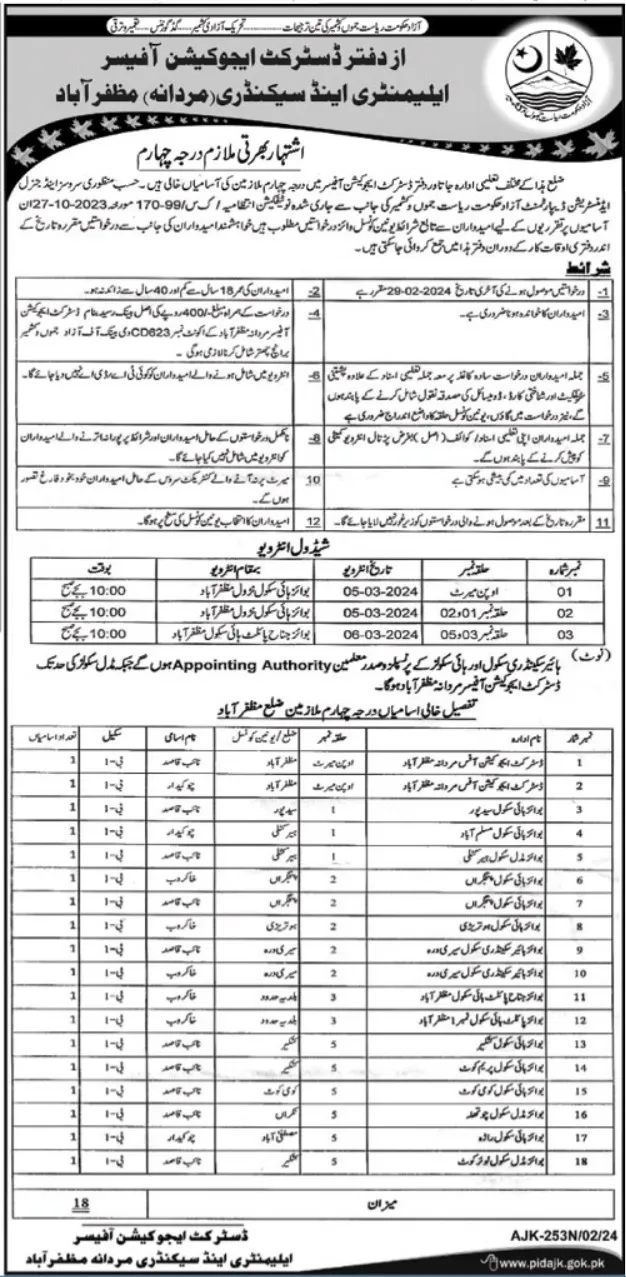 آزاد حکومت ریاست جموں و کشمیر کی تین ترجیحات تحریک آزادی کشمیر گڈ گورننس تعمیر و ترقی
از دفتر ڈسٹرکٹ ایجوکیشن آفیسر
ایلیمنٹری اینڈ سیکنڈری (مردانہ) مظفر آباد
اشتہار بھرتی ملازم درجہ چہارم
ضلع ہذا کے مختلف تعلیمی ادارہ جات اور دفتر ڈسٹرکٹ ایجوکیشن آفیسر میں درجہ چہارم ملازمین کی آسامیاں خالی ہیں۔ حسب منظوری سروسز اینڈ جنرل
ایڈمنسٹریشن ڈیپارٹمنٹ آزاد حکومت ریاست جموں و کشمیر کی جانب سے جاری شدہ نوٹیفکیشن انتظامیہ / ک س / 99-170 مورخہ 2023-10-27 ان
آسامیوں پر تقرریوں کے لیے امیدواران سے تابع شرائط یونین کونسل وائز درخواستیں مطلوب ہیں خواہشمند امیدواران کی جانب سے درخواستیں مقررہ تاریخ کے
اندر دفتری اوقات کار کے دوران دفتر ہذا میں جمع کروائی جاسکتی ہیں۔
شرائط
1- درخواستیں موصول ہونے کی آخری تاریخ 2024-02-29 مقرر ہے
2- امیدواران کی عمر 18 سال سے کم اور 40 سال سے زائد نہ ہو۔
3- امیدواران کا خواندہ ہونا ضروری ہے۔
4- درخواست کے ہمراہ مبلغ -/400 روپے کی اصل بینک رسید بنام ڈسٹرکٹ ایجوکیشن
آفیسر مردانہ مظفر آباد کے اکاؤنٹ نمبر CD623 دی بینک آف آزاد جموں و کشمیر
برانچ چھتر شامل کرنا لازمی ہوگی۔
5- جملہ امیدواران درخواست سادہ کاغذ پر معہ جملہ تعلیمی اسناد کے علاوہ پشتنی
سرٹیفکیٹ اور شناختی کارڈ، ڈومیسائل کی مصدقہ نقول شامل کرنے کے پابند ہوں
گے، نیز درخواست میں گاؤں، یونین کونسل حلقہ کا واضح اندراج ضروری ہے
6- انٹرویو میں شامل ہونے والے امیدواران کو کوئی ٹی اے/ڈی اے نہیں دیا جائے گا۔
7- جملہ امیدواران اپنی تعلیمی اسناد/کوائف (اصل) بغرض پڑتال انٹرویو کمیٹی
کو پیش کرنے کے پابند ہوں گے۔
8- نامکمل درخواستوں کے حامل امیدواران اور شرائط پر پورا نہ اترنے والے امیدواران
کو انٹرویو میں شامل نہیں کیا جائے گا۔
9- آسامیوں کی تعداد میں کمی بیشی ہو سکتی ہے
10 میرٹ پر نہ آنے والے کنٹریکٹ سروس کے حامل امیدواران خود بخود فارغ تصور
ہوں گے۔
11 مقررہ تاریخ کے بعد موصول ہونے والی درخواستوں کو زیر غور نہیں لایا جائے گا۔
12 امیدواران کا انتخاب یونین کونسل کی سطح پر ہوگا۔
شیڈول انٹرویو
نمبر شمار حلقہ نمبر تاریخ انٹرویو بمقام انٹرویو بوقت
01 اوپن میرٹ 05-03-2024 بوائز ہائی سکول نڑول مظفر آباد 10:00 بجے صبح
02 حلقہ نمبر 01 و 02 05-03-2024 بوائز ہائی سکول نڑول مظفر آباد 10:00 بجے صبح
03 حلقہ نمبر 03 و 05 06-03-2024 بوائز جناح پائلٹ ہائی سکول مظفر آباد 10:00 بجے صبح
(نوٹ) ہائیر سکینڈری سکول اور ہائی سکولز کے پرنسپلز و صدر معلمین Appointing Authority ہوں گے جبکہ مڈل سکولز کی حد تک
ڈسٹرکٹ ایجوکیشن آفیسر مردانہ مظفر آباد ہوگا۔
تفصیل خالی اسامیاں درجہ چہارم ملازمین ضلع مظفر آباد
نمبر شمار نام ادارہ حلقہ نمبر ضلع/یونین کونسل نام اسامی سکیل تعداد اسامیاں
1 ڈسٹرکٹ ایجوکیشن آفس مردانہ مظفر آباد اوپن میرٹ مظفر آباد نائب قاصد بی-1 1
2 ڈسٹرکٹ ایجوکیشن آفس مردانہ مظفر آباد اوپن میرٹ مظفر آباد چوکیدار بی-1 1
3 بوائز ہائی سکول سید پور 1 سید پور نائب قاصد بی-1 1
4 بوائز ہائی سکول مسلم آباد 1 چوکیدار بی-1 1
5 بوائز مڈل سکول 1 نائب قاصد بی-1 1
6 بوائز ہائی سکول پنجگراں 2 پنجگراں خاکروب بی-1 1
7 بوائز ہائی سکول پنجگراں 2 پنجگراں نائب قاصد بی-1 1
8 بوائز ہائی سکول ہوتریڑی 2 ہوتریڑی خاکروب بی-1 1
9 بوائز ہائیر سکینڈری سکول میری درہ 2 میری درہ نائب قاصد بی-1 1
10 بوائز ہائیر سکینڈری سکول میری درہ 2 میری درہ خاکروب بی-1 1
11 بوائز جناح پائلٹ ہائی سکول مظفر آباد 3 بلدیہ حدود خاکروب بی-1 1
12 بوائز پائلٹ ہائی سکول نمبر 1 مظفر آباد 3 بلدیہ حدود خاکروب بی-1 1
13 بوائز ہائی سکول 5 نائب قاصد بی-1 1
14 بوائز ہائی سکول پریم کوٹ 5 نائب قاصد بی-1 1
15 بوائز ہائی سکول کومی کوٹ 5 کومی کوٹ نائب قاصد بی-1 1
16 بوائز مڈل سکول 5 نائب قاصد بی-1 1
17 بوائز ہائی سکول راڑہ 5 مصطفیٰ آباد چوکیدار بی-1 1
18 بوائز مڈل سکول 5 نائب قاصد بی-1 1
میزان 18
ڈسٹرکٹ ایجوکیشن آفیسر
ایلیمنٹری اینڈ سیکنڈری مردانہ مظفر آباد
AJK-253N/02/24
www.pidajk.gok.pk